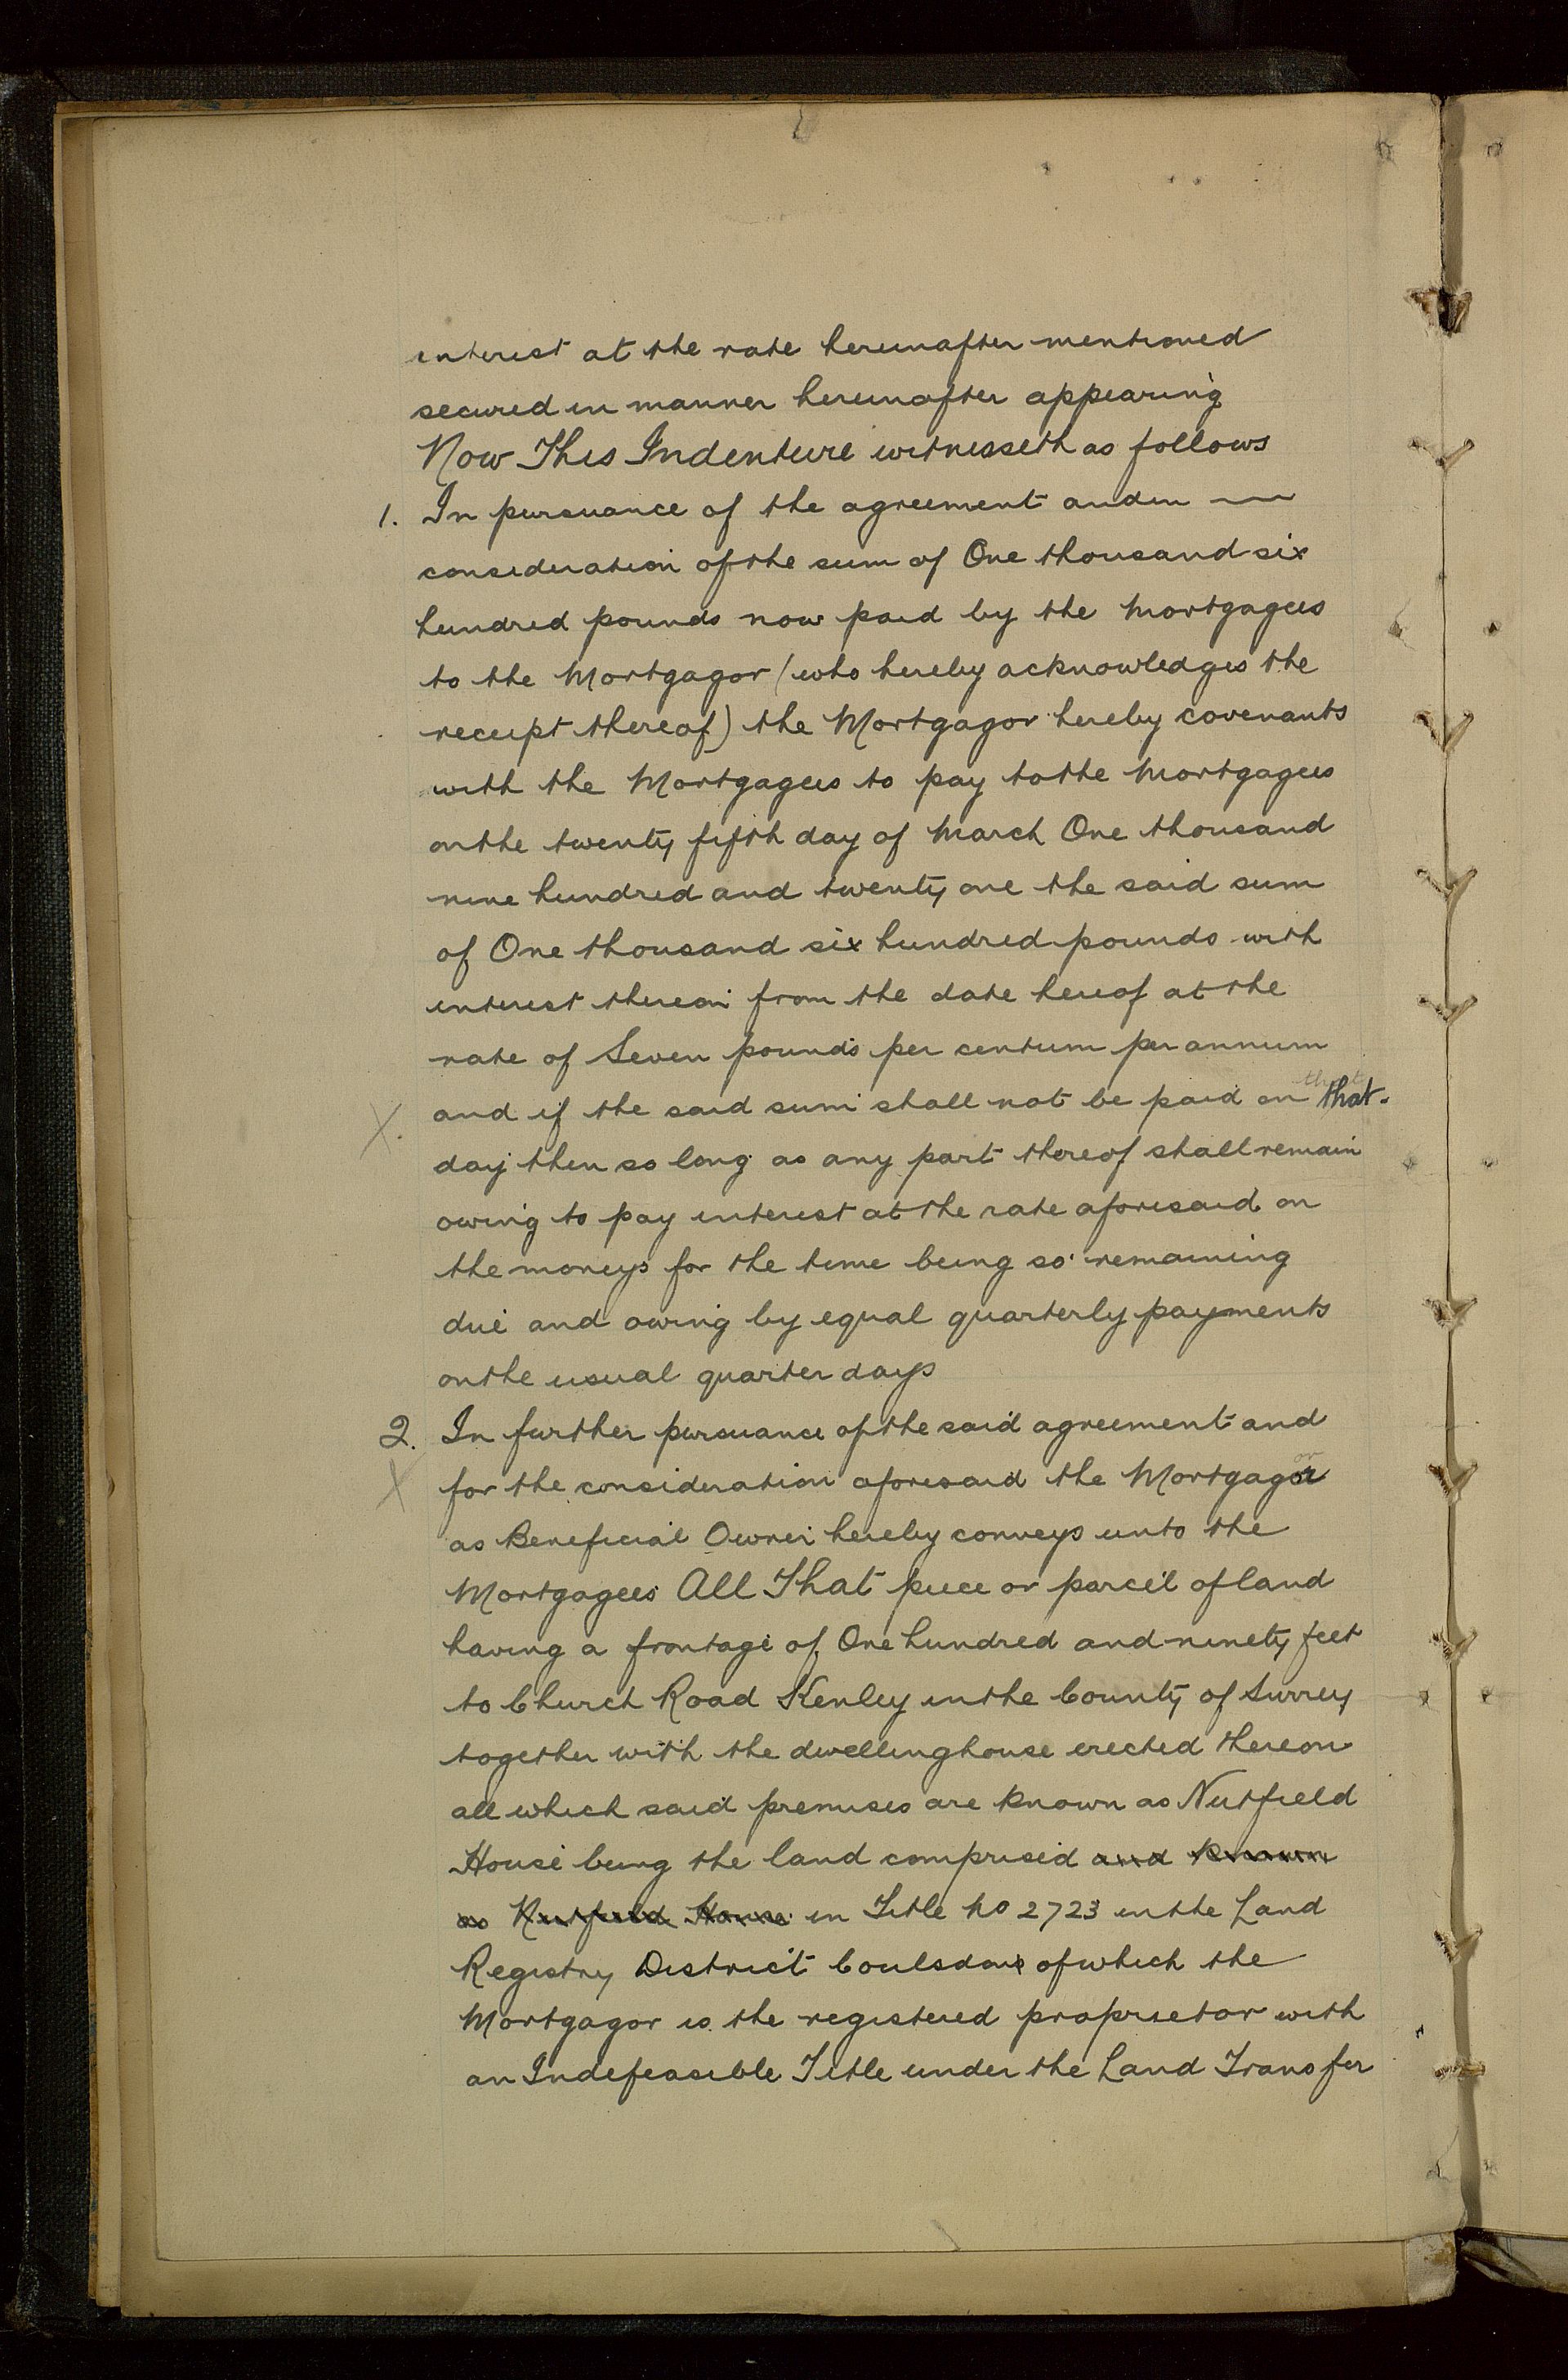 interest at the rate hereinafter mentioned
secured in manner hereinafter appearing
Now This Indenture witnesseth as follows
1. In pursuance of the agreement and in
consideration of the sum of One thousand six
hundred pounds now paid by the Mortgagees
to the Mortgagor (who hereby acknowledges the
receipt thereof) the Mortgagor hereby covenants
with the Mortgagees to pay to the Mortgagees
on the twenty fifth day of March One thousand
nine hundred and twenty one the said sum
of One thousand six hundred pounds with
interest thereon from the date hereof at the
rate of Seven pounds per centum per annum
X. and if the said sum shall not be paid on that
day then so long as any part thereof shall remain
owing to pay interest at the rate aforesaid on
the moneys for the time being so remaining
due and owing by equal quarterly payments
on the usual quarter days
2. In further pursuance of the said agreement and
X for the consideration aforesaid the Mortgagor
as Beneficial Owner hereby conveys unto the
Mortgagees All That piece or parcel of land
having a frontage of One hundred and ninety feet
to Church Road Kenley in the County of Surrey
together with the dwellinghouse erected thereon
all which said premises are known as Nutfield
House being the land comprised and known
as Nutfield House in Title No 2723 in the Land
Registry District Coulsdon of which the
Mortgagor is the registered proprietor with
an Indefeasible Title under the Land Transfer